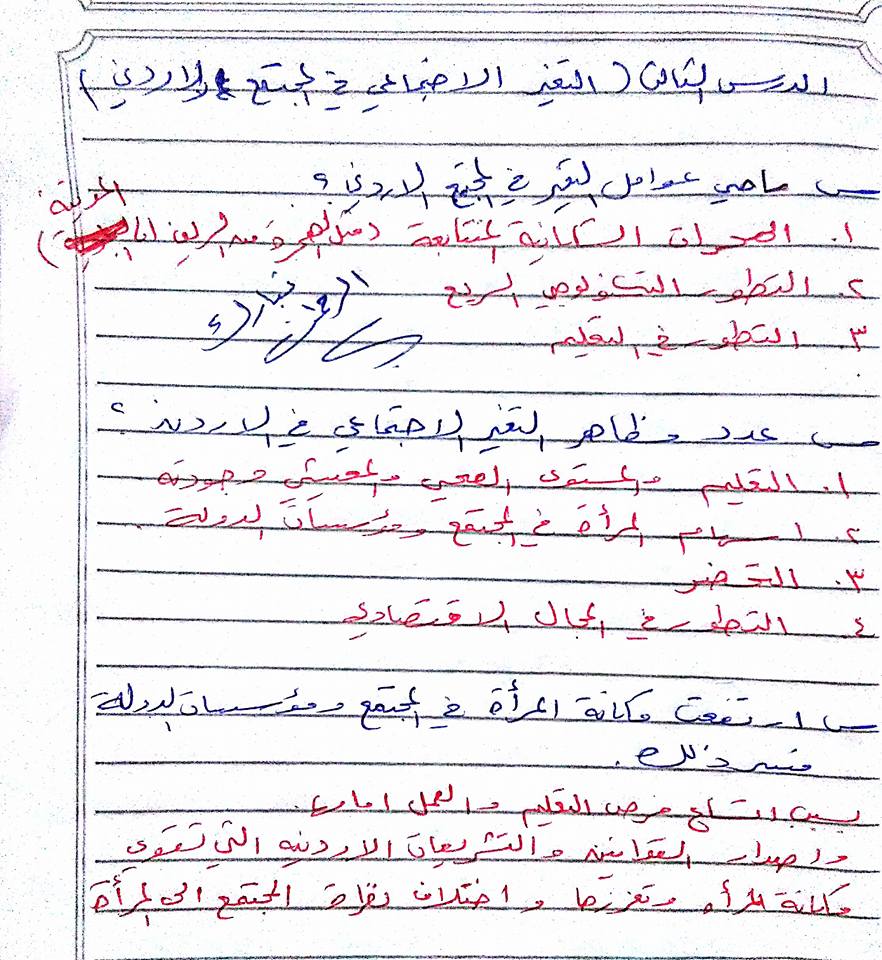 الدرس الثالث ( التغير الاجتماعي في المجتمع الاردني )
س ماهي عوامل التغير في المجتمع الاردني ؟
المدينة
١. الهجرات السكانية المتتابعة ( مثل الهجرة من الريف الى )
٢. التطور التكنولوجي السريع
٣. التطور في التعليم
س عدد مظاهر التغير الاجتماعي في الاردن ؟
١. التعليم والمستوى الصحي والمعيشي وجودته
٢. اسهام المرأة في المجتمع ومؤسسات الدولة .
٣. التحضر
٤ التطور في المجال الاقتصادي
س ارتفعت مكانة المرأة في المجتمع ومؤسسات الدولة
فسر ذلك .
بسبب اتساع فرص التعليم والعمل امامها .
واصدار القوانين والتشريعات الاردنيه التي تقوي
مكانة المرأه وتعززها و اختلاف نظرة المجتمع الى المرأة